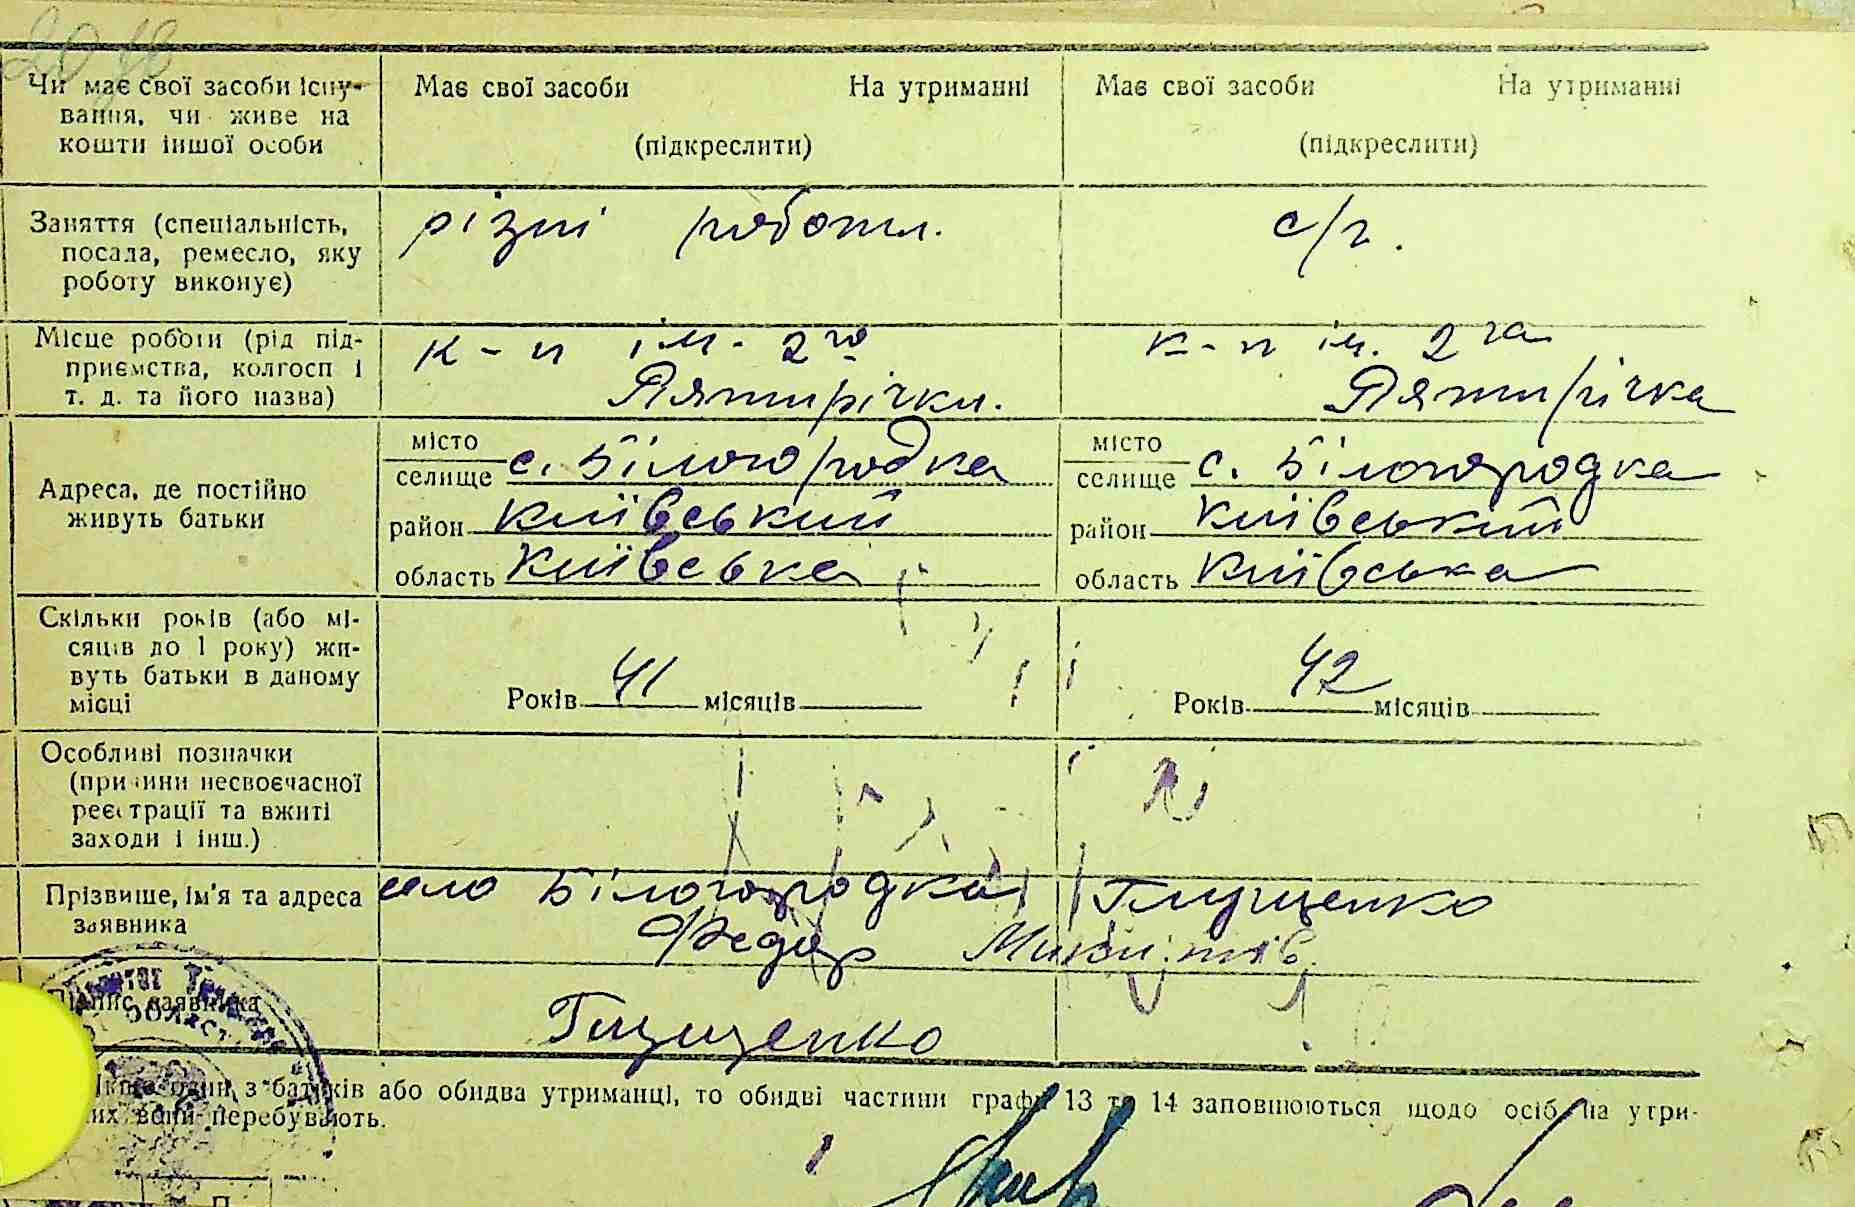 Чи має свої засоби існу-
вання, чи живе на
кошти іншої особи
Має свої засоби На утриманні
(підкреслити)
Має свої засоби На утриманні
(підкреслити)
Заняття (спеціальність,
посада, ремесло, яку
роботу виконує)
різні роботи.
с/г.
Місце роботи (рід під-
приємства, колгосп і
т. д. та його назва)
к-п ім. 2го
Пятирічки.
к-п ім. 2га
Пятирічка
Адреса, де постійно
живуть батьки
місто
селище с. Білогородка
район Київський
область Київська
місто
селище с. Білогородка
район Київський
область Київська
Скільки років (або мі-
сяців до 1 року) жи-
вуть батьки в даному
місці
Років 41 місяців
Років 42 місяців
Особливі позначки
(причини несвоєчасної
реєстрації та вжиті
заходи і інш.)
Прізвище, ім'я та адреса
заявника
село Білогородка Глущенко
Федор
Підпис заявника
Глущенко
Якщо один з батьків або обидва утриманці, то обидві частини граф 13 та 14 заповнюються щодо осіб, на утри-
них вони перебувають.